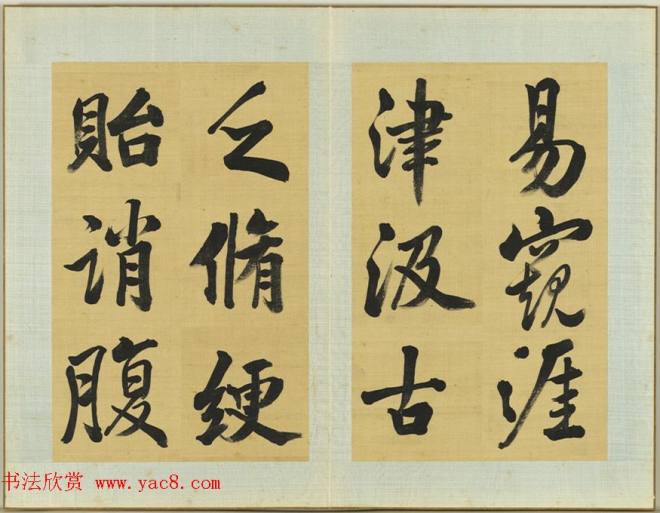 易窺涯
津汲古
乏脩綆
貽誚腹
书法欣赏 www.yac8.com